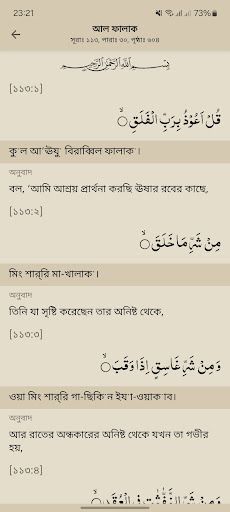 23:21 73%
আল ফালাক
সূরাঃ ১১৩, পারাঃ ৩০, পৃষ্ঠাঃ ৬০৪
بِسْمِ اللَّهِ الرَّحْمَٰنِ الرَّحِيمِ
[১১৩:১]
قُلْ اَعُوْذُ بِرَبِّ الْفَلَقِۙ
কু'ল আ'ঊযু' বিরাব্বিল ফালাক'।
অনুবাদ
বল, 'আমি আশ্রয় প্রার্থনা করছি ঊষার রবের কাছে,
[১১৩:২]
مِنْ شَرِّ مَا خَلَقَۙ
মিং শার্‌রি মা-খালাক'।
অনুবাদ
তিনি যা সৃষ্টি করেছেন তার অনিষ্ট থেকে,
[১১৩:৩]
وَمِنْ شَرِّ غَاسِقٍ اِذَا وَقَبَۙ
ওয়া মিং শার্‌রি গা-ছিকি'ন ইয'া-ওয়াক'াব।
অনুবাদ
আর রাতের অন্ধকারের অনিষ্ট থেকে যখন তা গভীর
হয়,
[১১৩:৪]
وَمِنْ شَرِّ النَّفّٰثٰتِ فِى الْعُقَدِۙ